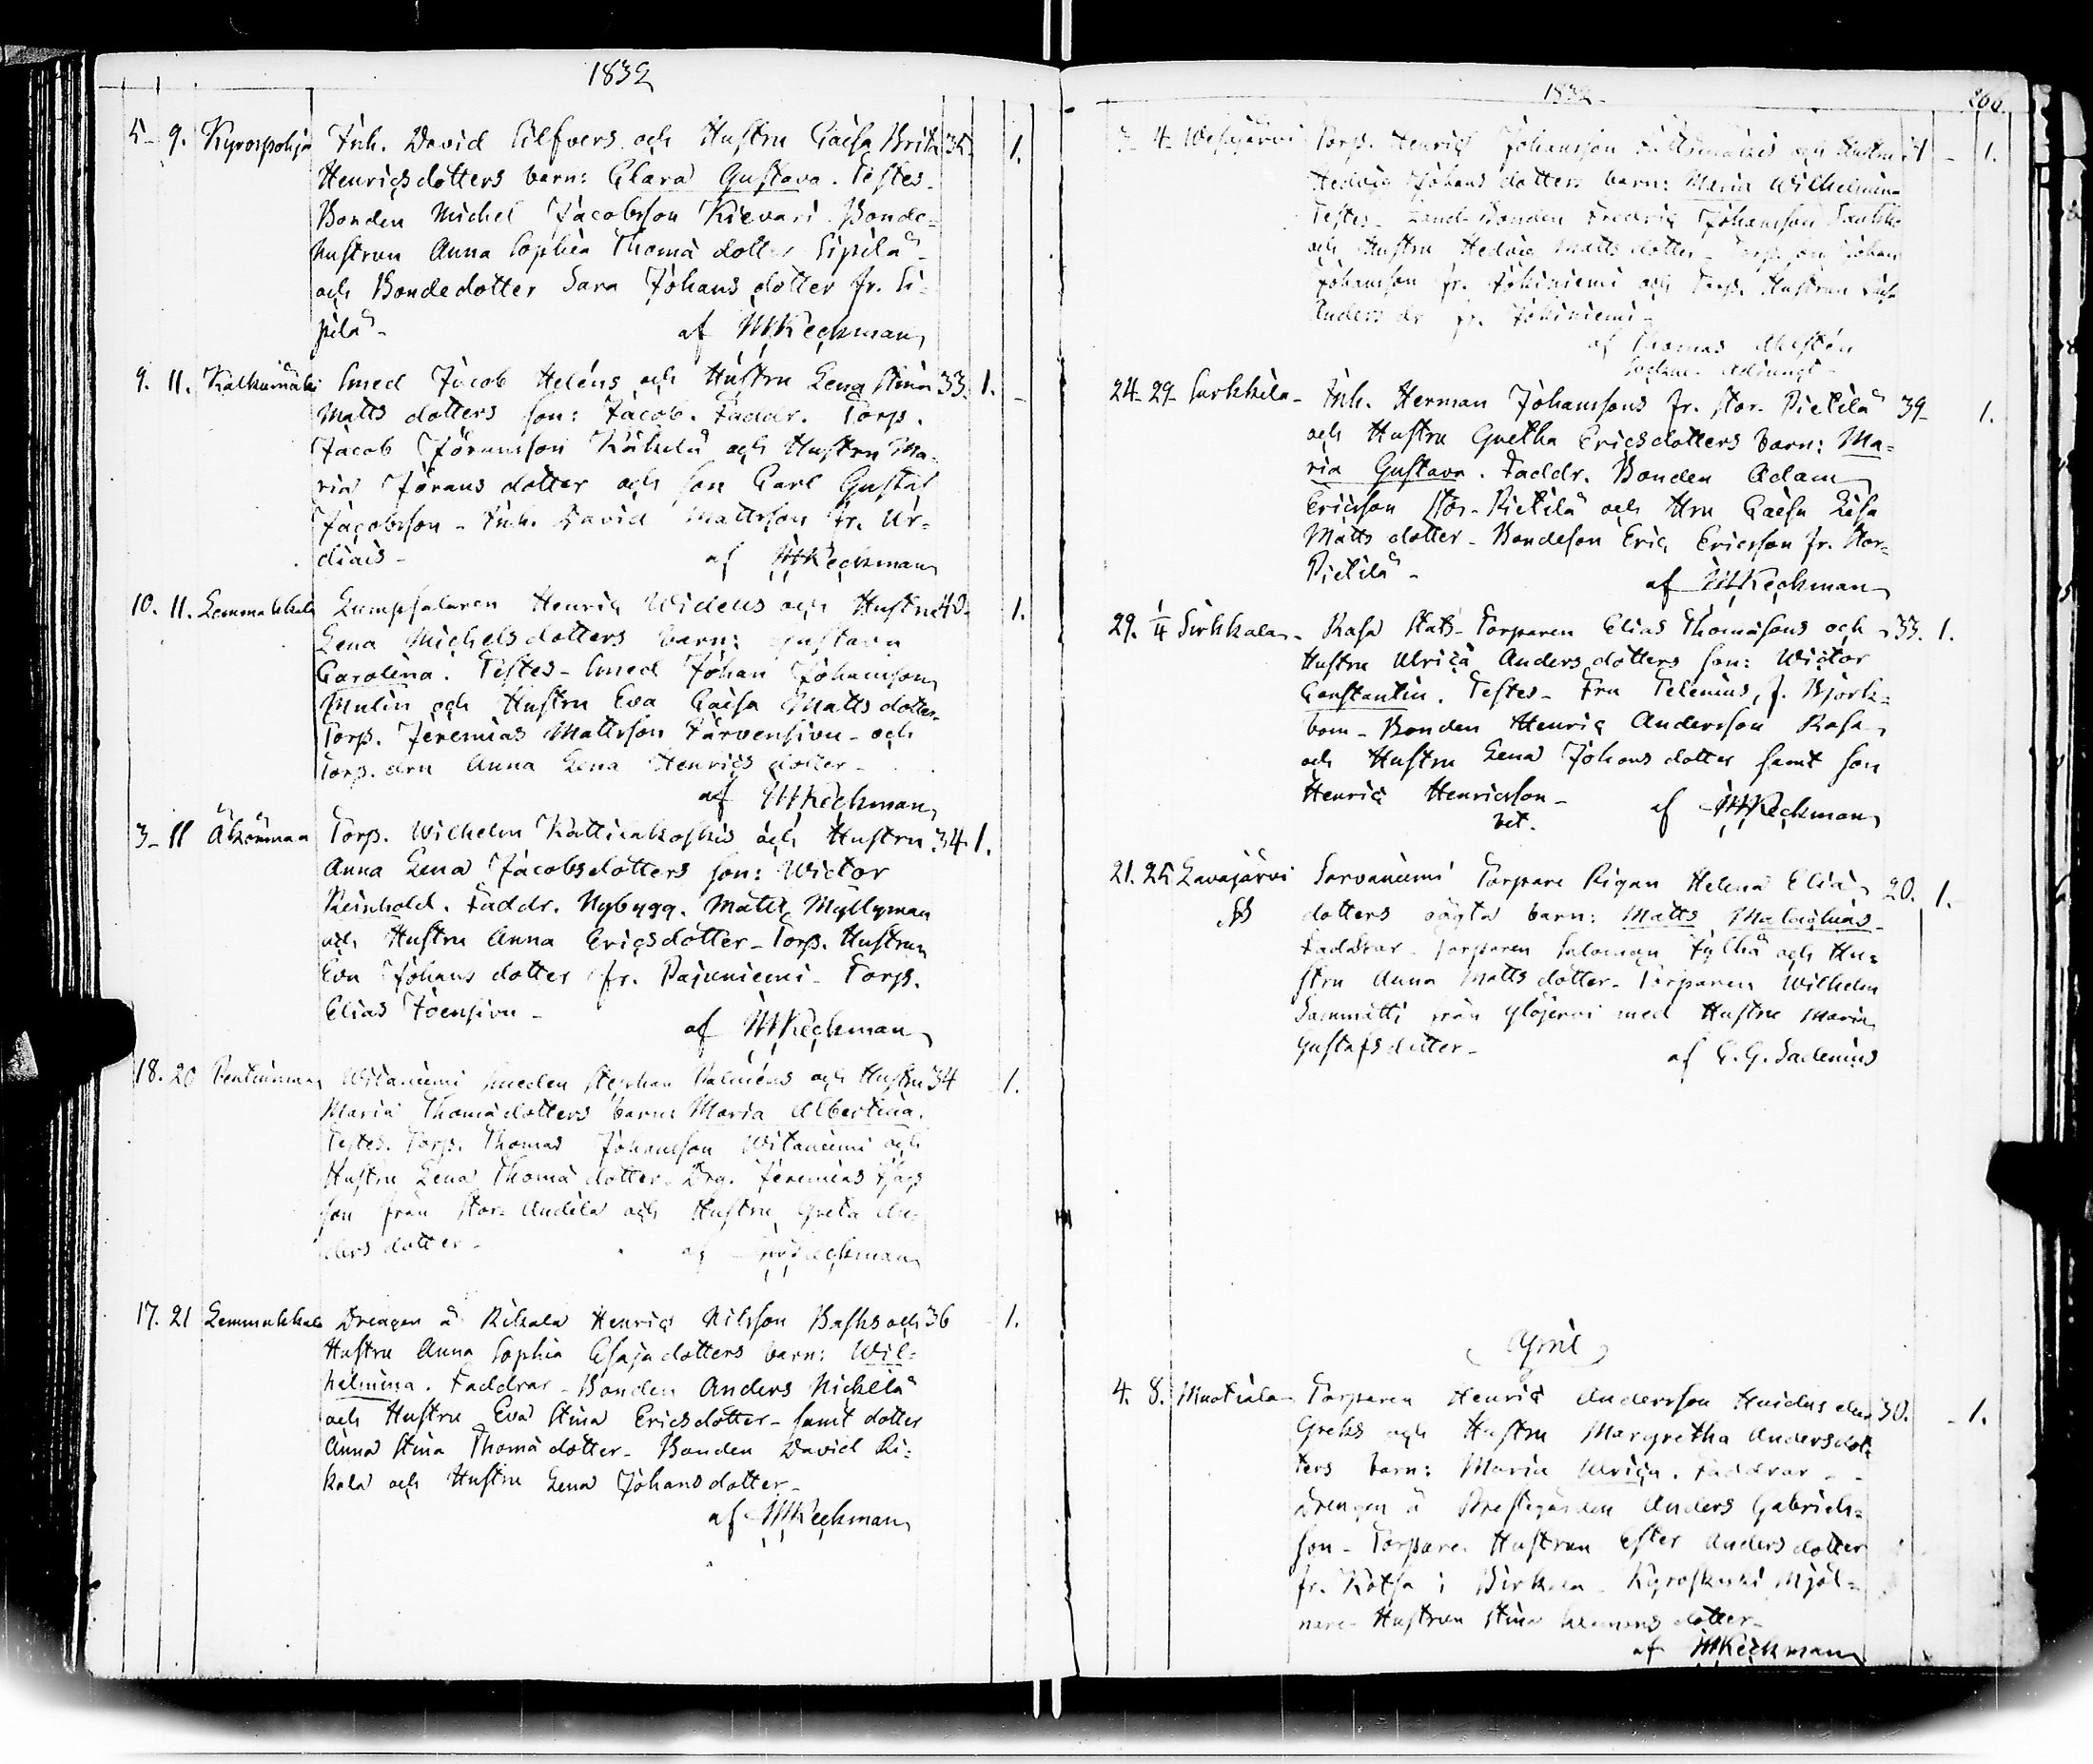 1832
5- 9. Kyrospohja Inh. David Silfvers och Hustru Caisa Brita 35- 1.
Henricsdotters barn: Clara Gustava. Testes.
Bonden Michel Jacobsson Kievari Bonde-
hustrun Anna Sophia Thomä dotter Sipilä-
och Bondedotter Sara Johans dotter fr. Si-
pilä- af MKeckman
9. 11. Kalkunmäki Smed Jacob Heléns och Hustru Lena Stina 33. 1.
Matts dotters son: Jacob. Faddr. Torp.
Jacob Jöransson Kähelä och Hustru Ma-
ria Jörans dotter och son Carl Gustaf
Jacobsson - Inh. David Mattsson fr. Ur-
diais- af MKeckman
10. 11. Lemmakkala Lumpsalaren Henric Widens och Hustru 40. 1.
Lena Michelsdotters barn: Gustava
Carolina. Testes- Smed Johan Johansson
Mulin och Hustru Eva Caisa Matts dotter-
Torp. Jeremias Mattsson Järvensivu- och
Torp. drn Anna Lena Henrics dotter-
af MKeckman
3- 11 Äkönmaa Torp. Wilhelm Kattilakoskis och Hustru 34. 1.
Anna Lena Jacobsdotters son: Wictor
Reinhold. Faddr. Nybygg. Matts Myllyman
och Hustru Anna Ericsdotter- Torp. Hustrun
Eva Johans dotter fr. Pajuniemi- Torp.
Elias Joensivu- af MKeckman
18. 20 Pentinmaa Witaniemi smeden Stephan Malméns och Hustru 34 1.
Maria Thomädotters barn: Maria Albertina.
Testes. Torp. Thomas Johansson Witaniemi och
Hustru Lena Thomä dotter- Drg. Jeremias Isacs
son från Stor- Andila och Hustru Greta An-
ders dotter- af MKeckman
17. 21 Lemmakkala Drengen å Rikala Henric Nilsson Basks och 36 1.
Hustru Anna Sophia Esajadotters barn: Wil-
helmina. Faddrar- Bonden Anders Nickilä
och Hustru Eva Stina Ericsdotter- samt dotter
Anna Stina Thomä dotter- Bonden David Ri-
kala och Hustru Lena Johansdotter-
af MKeckman
1832- 266.
3- 4- Wesajärvi Torp. Henric Johansson och Hustru 41 - 1.
Hedvig Johans dotters barn: Maria Wilhelmina
Testes- Land-Bonden Fredric Johansson
och Hustru Hedvig Matts dotter- Torp. son Johan
Johansson fr. Jokiniemi och Torp. Hustrun Caisa
Anders dr fr. Jokiniemi-
af Thomas Ahlstén
Sockne- Adjunct-
24- 29- Surkkila- Inh. Herman Johanssons fr. Stor- Pietilä 39- 1.
och Hustru Gretha Ericsdotters barn: Ma-
ria Gustava. Faddr. Bonden Adam
Ericsson Stor- Pietilä och Hru Caisa Lisa
Matts dotter- Bondeson Eric Ericsson fr. Stor-
Pietilä- af MKeckman
29. 1/4 Sirkkala- Rasa Stats-Torparen Elias Thomäsons och 33. 1.
Hustru Ulrica Anders dotters son: Wictor
Constantin. Testes- Fru Telenius, f. Björk-
bom- Bonden Henric Andersson Rasa
och Hustru Lena Johans dotter samt son
Henric Henricsson- af MKeckman
vet.
21. 25 Lavajärvi Sarvaniemi Torpare Pigan Helena Elia 20. 1.
dotters oägta barn: Matts Malachias-
Faddrar- Torparen Salomon Jylhä och Hu-
stru Anna Matts dotter- Torparen Wilhelm
Sammatti från Ylöjervi med Hustru Maria
Gustafs dotter- af G. G. Sadenius
April
4. 8. Muotiala- Torparen Henric Andersson Huidus eller 30. - 1.
Greks och Hustru Margretha Andersdot-
ters barn: Maria Ulrica. Faddrar-
Drengen å Prestegården Anders Gabriels-
son- Torpare Hustrun Ester Anders dotter
fr. Kotsa i Birkala- Kyroskoski Mjöl-
nare- Hustrun Stina dotter-
af MKeckman